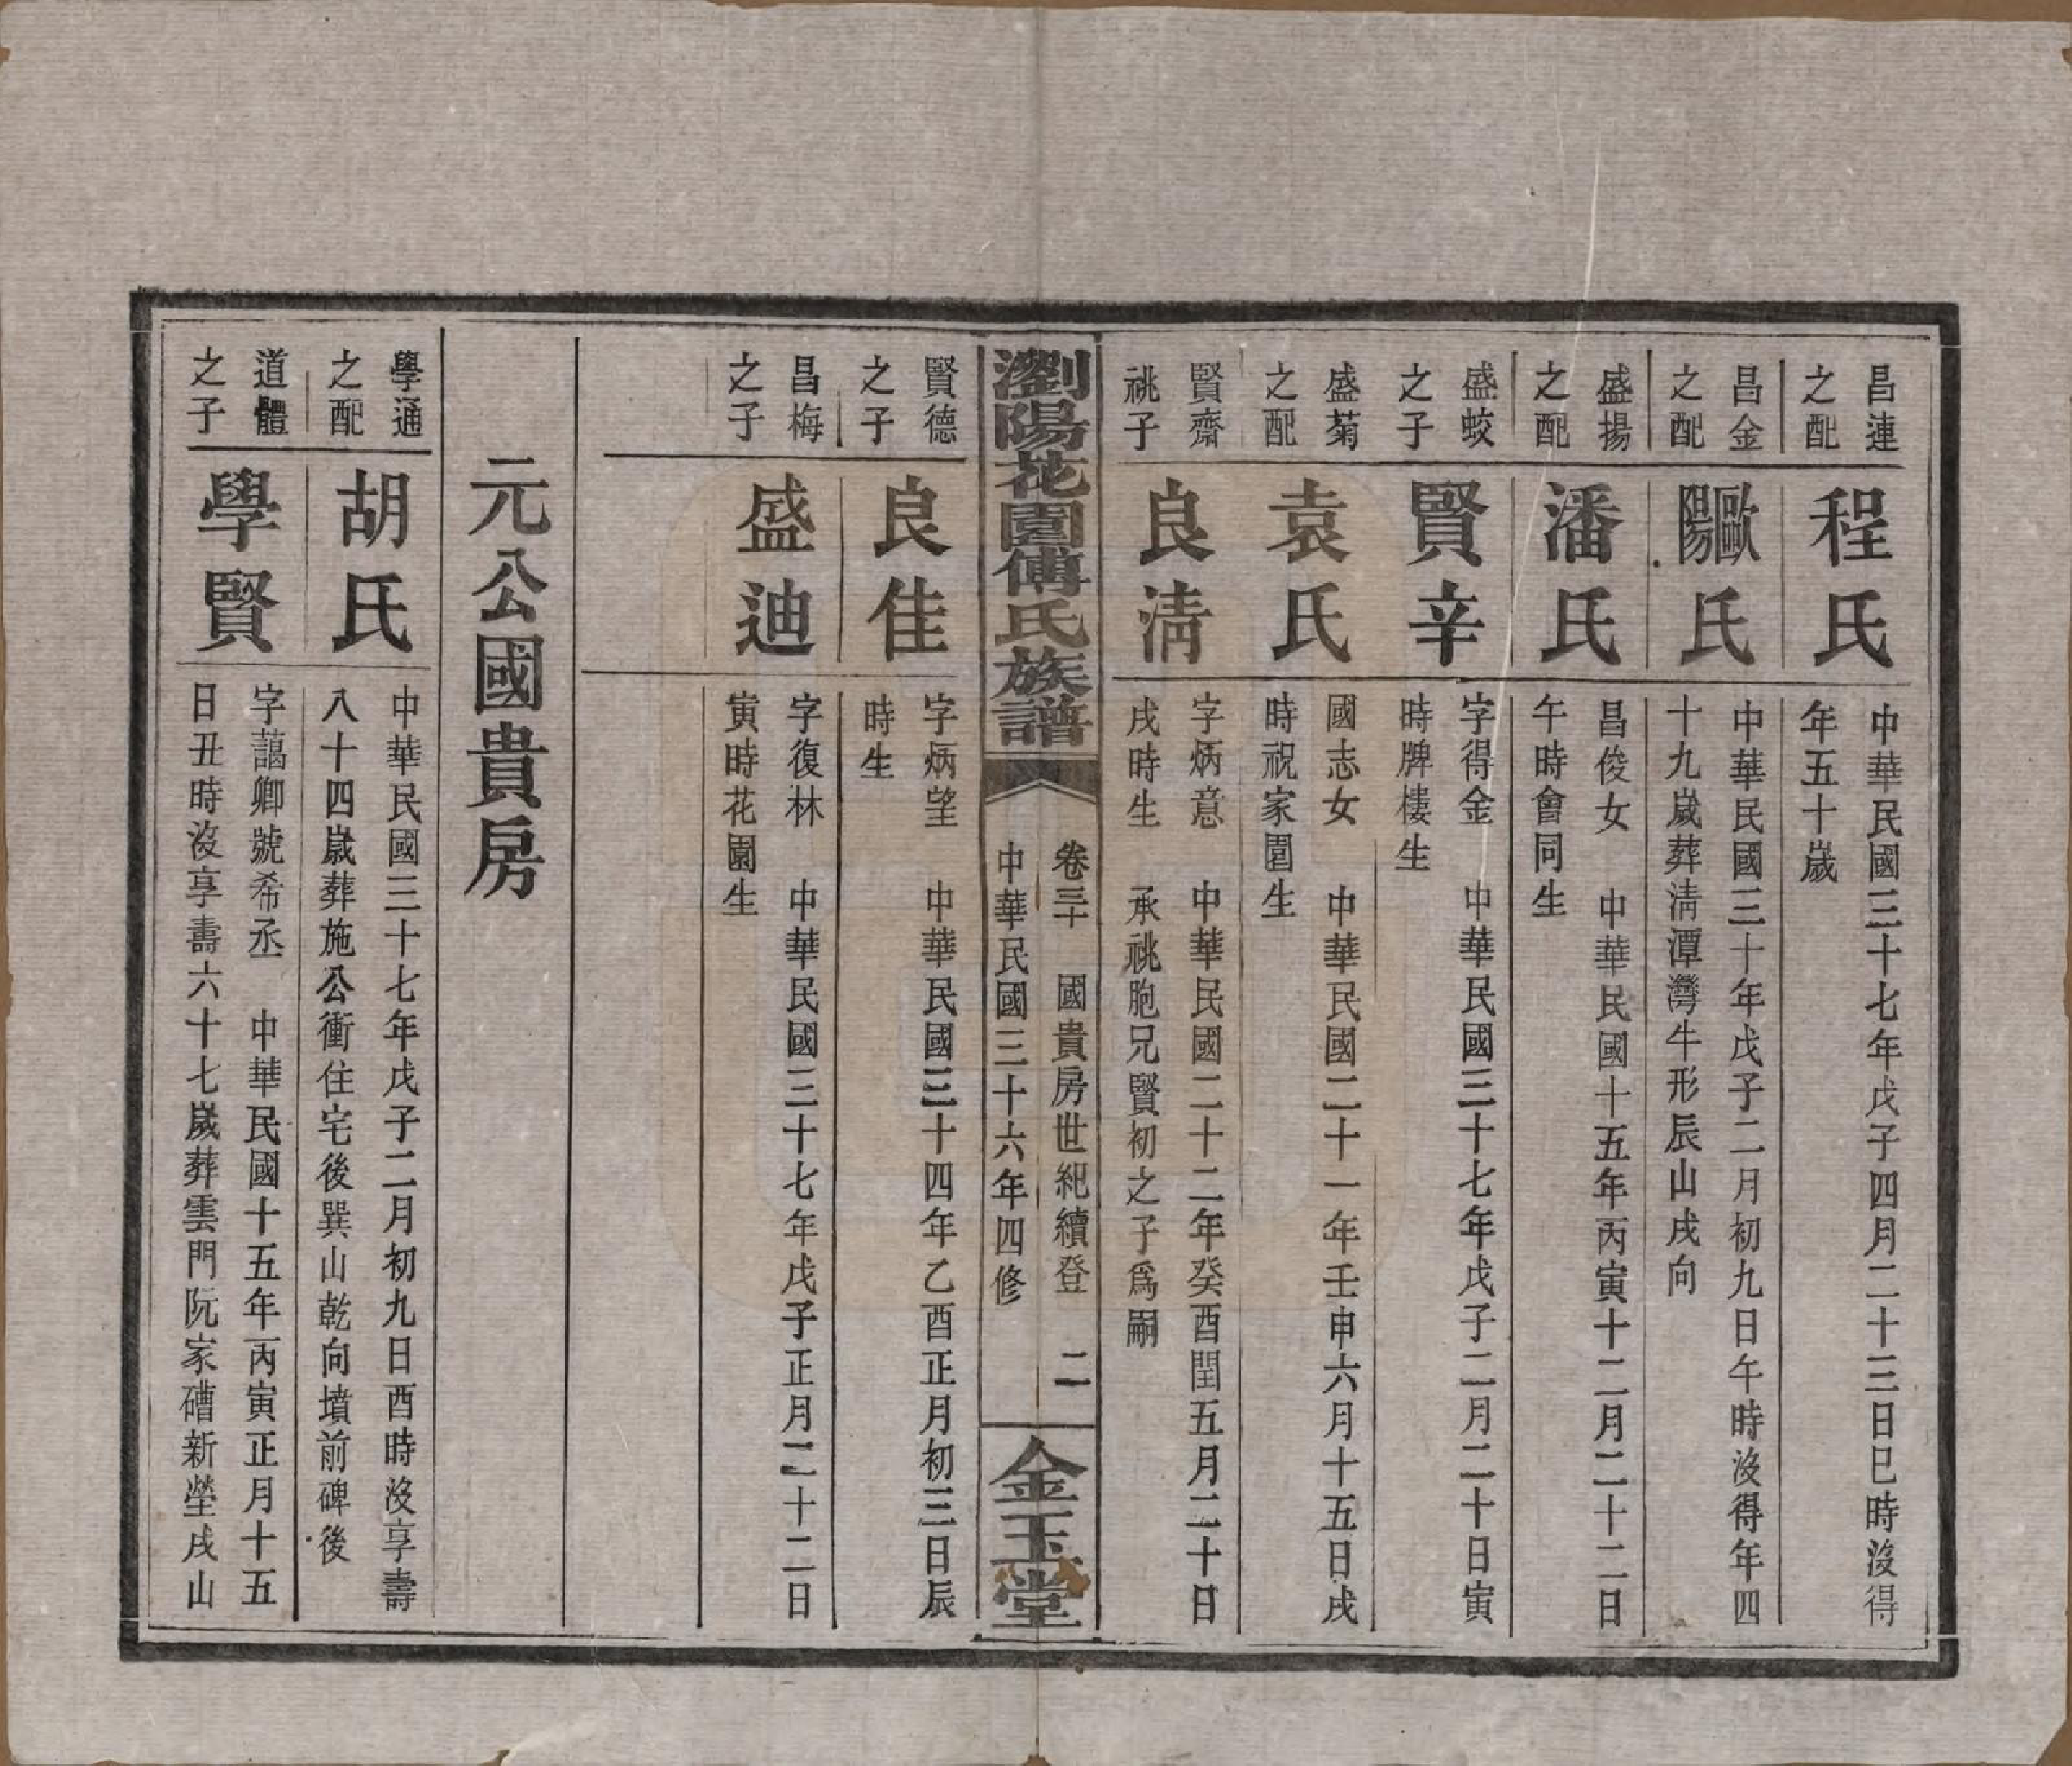 昌連
之配
程氏
中華民國三十七年戊子四月二十三日巳時沒得
年五十歲
昌金
之配
歐陽氏
中華民國三十年戊子二月初九日午時沒得年四
十九歲葬清潭灣牛形辰山戌向
盛揚
之配
潘氏
昌俊女　中華民國十五年丙寅十二月二十二日
午時會同生
盛蛟
之子
賢辛
字得金　中華民國三十七年戊子二月二十日寅
時牌樓生
盛菊
之配
袁氏
國志女　中華民國二十一年壬申六月十五日戌
時祝家園生
賢齋
祧子
良清
字炳意　中華民國二十二年癸酉閏五月二十日
戌時生　承祧胞兄賢初之子為嗣
瀏陽花園傅氏族譜
卷三十　國貴房世紀續登　二
中華民國三十六年四修
金玉堂
賢德
之子
良佳
字炳望　中華民國三十四年乙酉正月初三日辰
時生
昌梅
之子
盛迪
字復林　中華民國三十七年戊子正月二十二日
寅時花園生
元公國貴房
學通
之配
胡氏
中華民國三十七年戊子二月初九日酉時沒享壽
八十四歲葬施公衝住宅後巽山乾向墳前碑後
道體
之子
學賢
字藹卿號希丞　中華民國十五年丙寅正月十五
日丑時沒享壽六十七歲葬雲門阮家磳新塋戌山